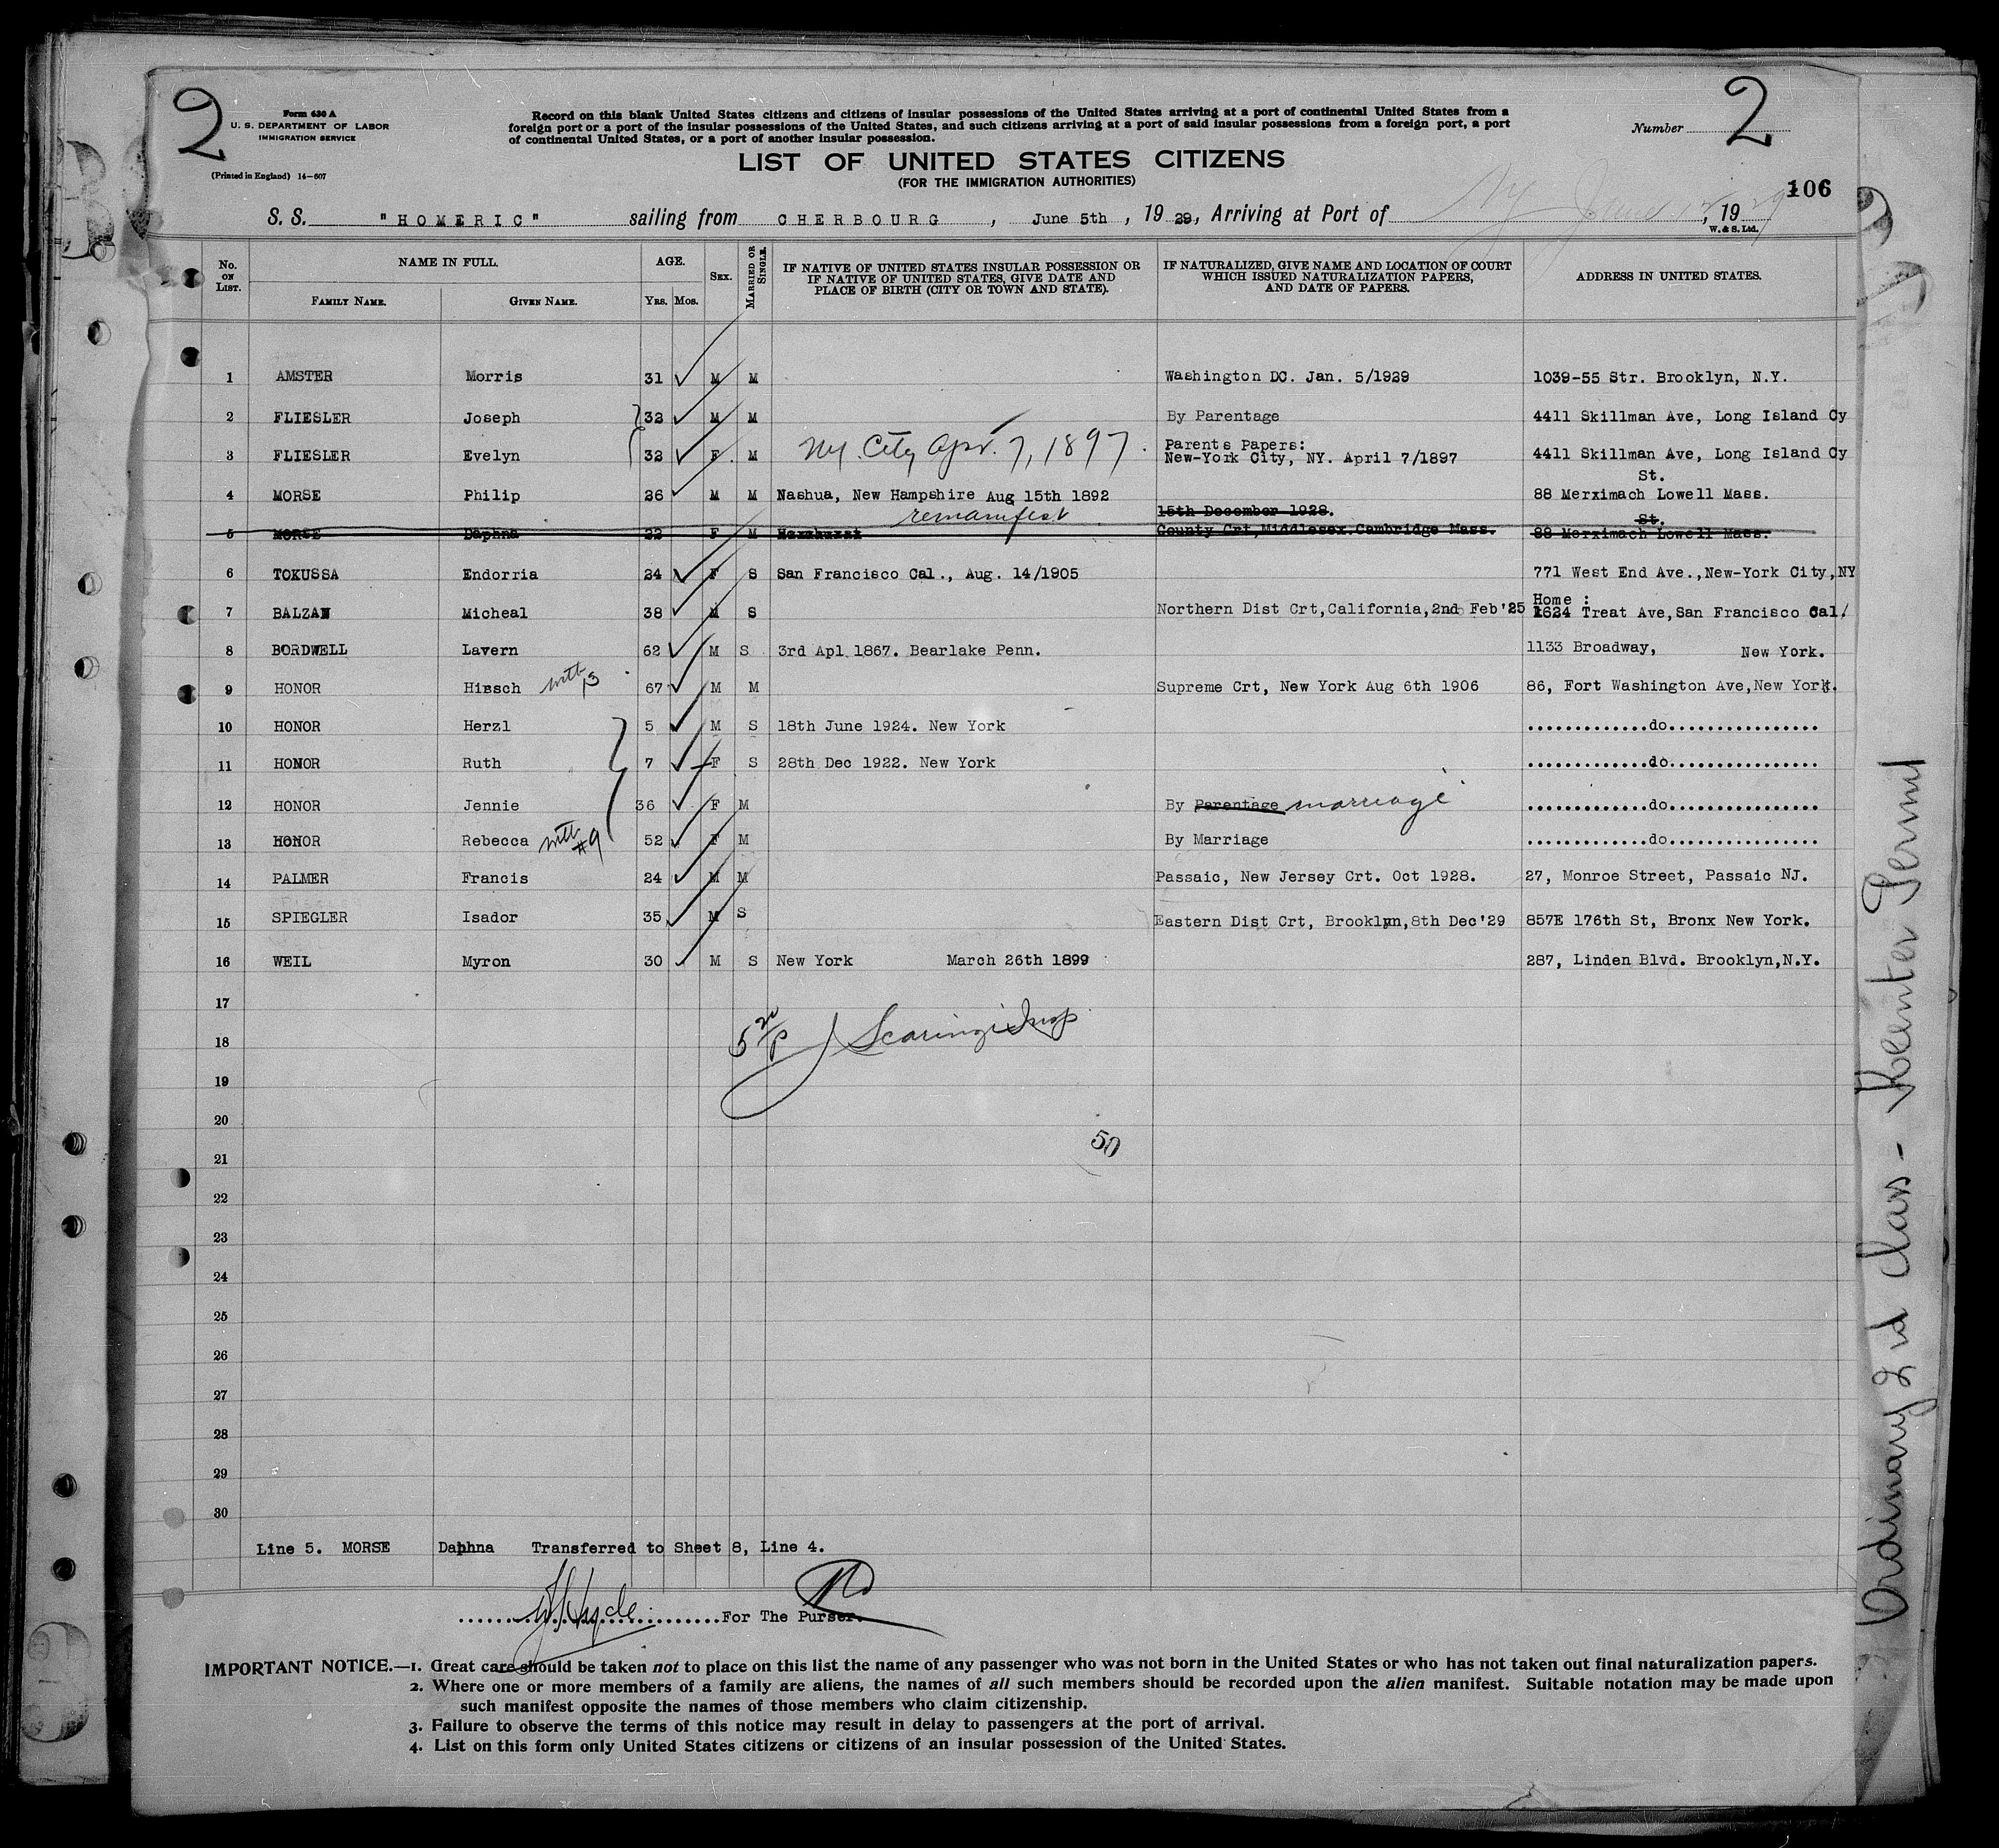 2
2
Form 630 A
U. S. DEPARTMENT OF LABOR
IMMIGRATION SERVICE
(Printed in England) 14—607
Record on this blank United States citizens and citizens of insular possessions of the United States arriving at a port of continental United States from a
foreign port or a port of the insular possessions of the United States, and such citizens arriving at a port of said insular possessions from a foreign port, a port
of continental United States, or a port of another insular possession.
Number
LIST OF UNITED STATES CITIZENS
(FOR THE IMMIGRATION AUTHORITIES)
106
S. S. "HOMERIC" sailing from CHERBOURG, June 5th, 1929, Arriving at Port of NY June 12, 1929
W. & S. Ltd.
No. ON LIST. NAME IN FULL. AGE. SEX. MARRIED OR SINGLE. IF NATIVE OF UNITED STATES INSULAR POSSESSION OR IF NATIVE OF UNITED STATES, GIVE DATE AND PLACE OF BIRTH (CITY OR TOWN AND STATE). IF NATURALIZED, GIVE NAME AND LOCATION OF COURT WHICH ISSUED NATURALIZATION PAPERS, AND DATE OF PAPERS. ADDRESS IN UNITED STATES.
FAMILY NAME. GIVEN NAME. YRS. MOS.
1 AMSTER Morris 31 M M Washington DC. Jan. 5/1929 1039-55 Str. Brooklyn, N.Y.
2 FLIESLER Joseph 32 M M By Parentage 4411 Skillman Ave, Long Island Cy
Parents Papers:
3 FLIESLER Evelyn 32 F M NY. City Apr. 7, 1897. New-York City, NY. April 7/1897 4411 Skillman Ave, Long Island Cy
St.
4 MORSE Philip 26 M M Nashua, New Hampshire Aug 15th 1892 88 Merximach Lowell Mass.
remanifest 15th December 1928. St.
5 MORSE Daphna 22 F M County Crt, Middlesex. Cambridge Mass. 88 Merximach Lowell Mass.
6 TOKUSSA Endorria 24 F S San Francisco Cal., Aug. 14/1905 771 West End Ave., New-York City, NY
Home :
7 BALZAN Micheal 38 M S Northern Dist Crt, California, 2nd Feb'25 1624 Treat Ave, San Francisco Cal.
8 BORDWELL Lavern 62 M S 3rd Apl 1867. Bearlake Penn. 1133 Broadway, New York.
9 HONOR Hirsch with 13 67 M M Supreme Crt, New York Aug 6th 1906 86, Fort Washington Ave, New York.
10 HONOR Herzl 5 M S 18th June 1924. New York .............do................
11 HONOR Ruth 7 F S 28th Dec 1922. New York .............do................
12 HONOR Jennie 36 F M By Parentage marriage .............do................
13 HONOR Rebecca with #9 52 F M By Marriage .............do................
14 PALMER Francis 24 M M Passaic, New Jersey Crt. Oct 1928. 27, Monroe Street, Passaic NJ.
15 SPIEGLER Isador 35 M S Eastern Dist Crt, Brooklyn, 8th Dec'29 857E 176th St, Bronx New York.
16 WEIL Myron 30 M S New York March 26th 1899 287, Linden Blvd. Brooklyn, N.Y.
17
J Scaringi Insp
18
19
20
50
21
22
23
24
25
26
27
28
29
30
Line 5. MORSE Daphna Transferred to Sheet 8, Line 4.
For The Purser.
IMPORTANT NOTICE.—1. Great care should be taken not to place on this list the name of any passenger who was not born in the United States or who has not taken out final naturalization papers.
2. Where one or more members of a family are aliens, the names of all such members should be recorded upon the alien manifest. Suitable notation may be made upon
such manifest opposite the names of those members who claim citizenship.
3. Failure to observe the terms of this notice may result in delay to passengers at the port of arrival.
4. List on this form only United States citizens or citizens of an insular possession of the United States.
Ordinary 2nd Class - Reenter Permit